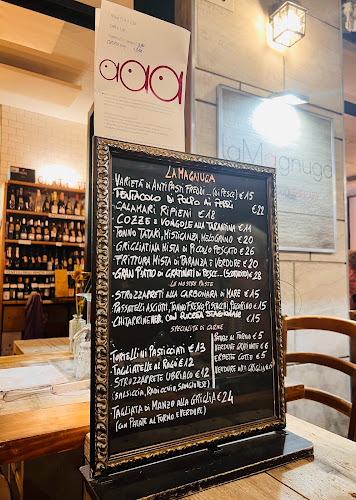 aaa
laMagnuga
LA MAGNUGA
VARIETÀ DI ANTIPASTI FREDDI... (DI PESCE) €15
TENTACOLO DI POLPO AI FERRI €22
CALAMARI RIPIENI €18
COZZE E VONGOLE ALLA TARANTINA €15
TONNO TATARI, MISTICANZA, MELOGRANO €20
GRIGLIATINA MISTA DI PICCOLO PESCATO €26
FRITTURA MISTA DI PARANZA E VERDURE €20
GRAN PIATTO DI GRATINATI DI PESCE... €28
LE NOSTRE PASTE
STROZZAPRETI ALLA CARBONARA DI MARE €15
PASTATELLE ASCIUTTI, TONNO FRESCO, PISTACCHI, PECORINO €15
CHITARRINE NER CON RICCETTA STAGIONALE €15
SPECIALITÀ DI CARNE
TORTELLINI PASTICCIATI €13
TAGLIATELLE AL RAGÙ €12
STROZZAPRETE UBRIACO €12
(SALSICCIA, RADICCHIO, SANGIOVESE)
TAGLIATA DI MANZO ALLA GRIGLIA €24
(CON PATATE AL FORNO E VERDURE)
AL FORNO €5
VERDURE GRATINATE €6
ERBETTE COTTE €5
VERDURE ALLA GRIGLIA €6